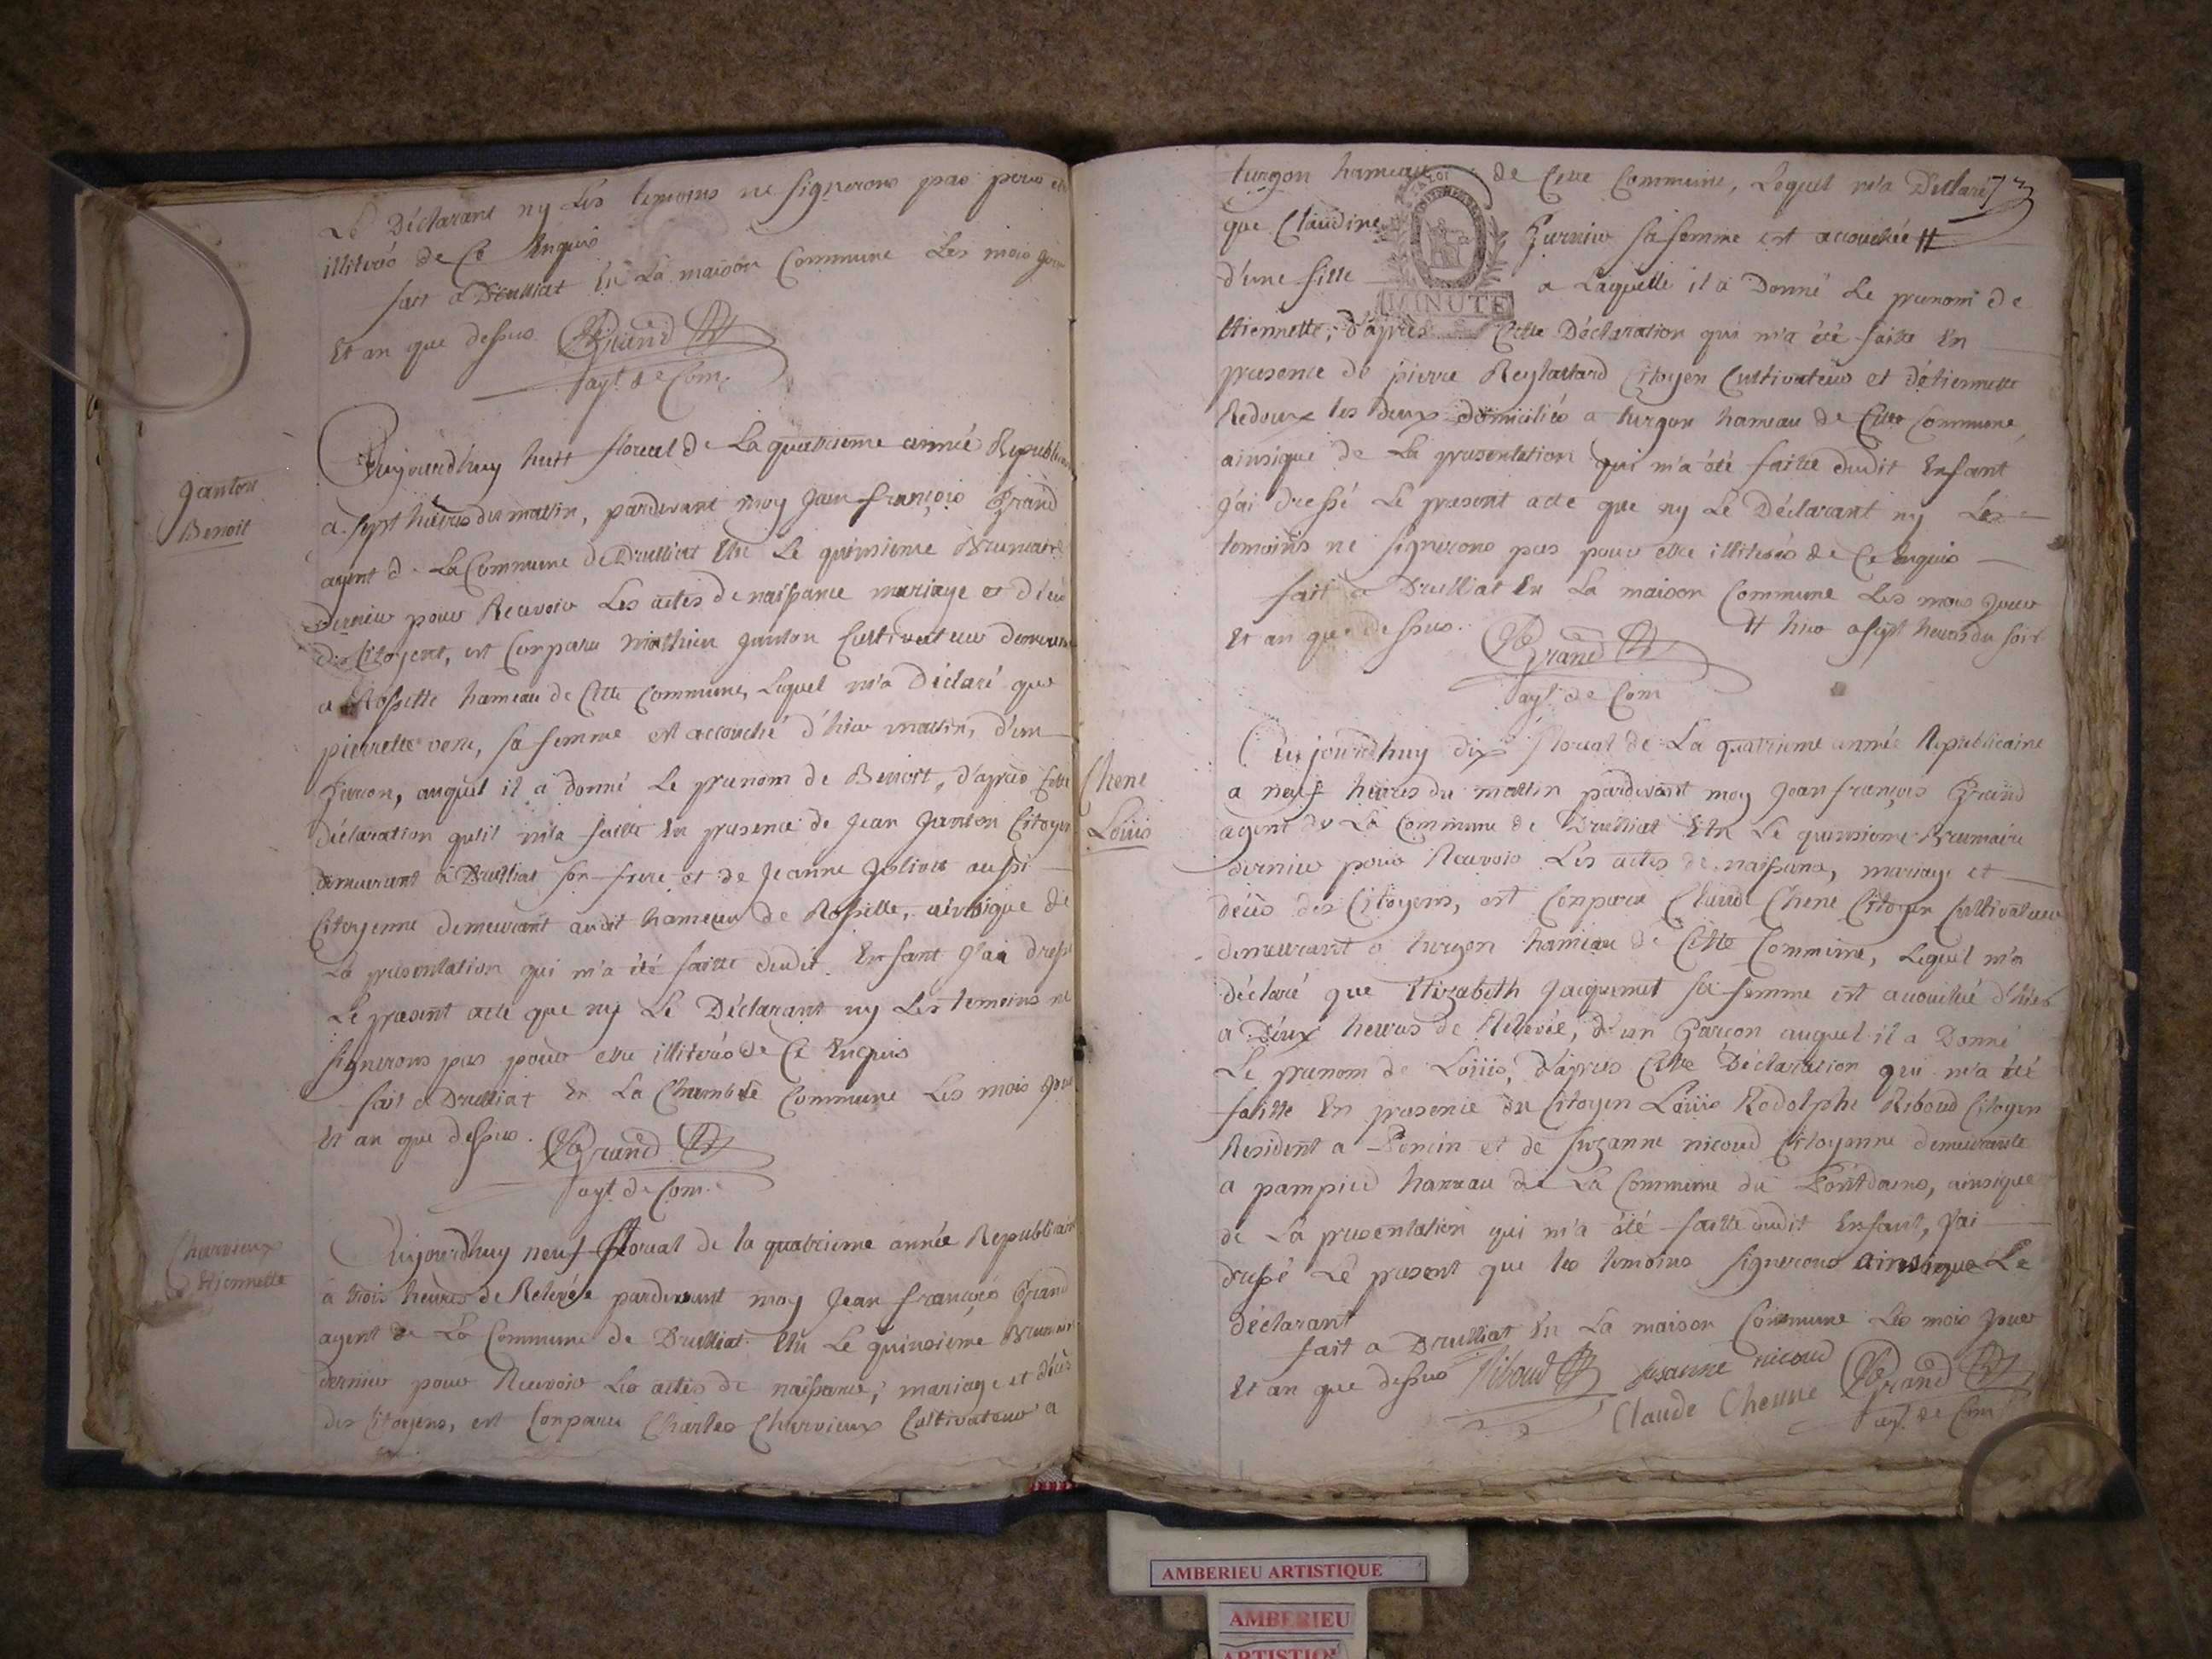 Le Déclarant ny Les temoins ne signerons pas pour etre
illiterés de Ce Enquis
fait a Druilliat En La maison Commune Les mois jour
Et an que dessus Grand
agt. de Com.
Janton
Benoit
Aujourdhuy huit floreal de La quatrieme année Republicaine
a sept heures du matin, pardevant moy Jean françois Grand
agent de La Commune de Druilliat Elu Le quinsieme Brumaire
dernier pour Recevoir Les actes de naissance mariage et décès
des Citoyens, est Comparu mathieu Janton Cultivateur demeurant
a Rossette hameau de Cette Commune, Lequel m'a Déclaré que
pierrette vene, sa femme est accouché d'hier mattin, d'un
Garson, auquel il a donné Le prenom de Benoit, d'après Cette
déclaration qu'il m'a faitte En presence de Jean Janton Citoyen
demeurant a Druilliat son frere et de Jeanne Jolivet aussi
Citoyenne demeurant audit hameau de Rossette, ainsique de
La presentation qui m'a été faitte dudit Enfant J'ai dressé
Le present acte que ny Le Déclarant ny Les temoins ne
signerons pas pour etre illiterés de Ce Enquis
fait a Druilliat En La Chambre Commune Les mois jour
Et an que dessus. Grand
agt. de Com.
Charvieux
Etiennette
Aujourdhuy neuf floreal de la quatrieme année Republicaine
a trois heures de Relevée pardevant moy Jean françois Grand
agent de La Commune de Druilliat Elu Le quinsieme Brumaire
dernier pour Recevoir Les actes de naissance, mariage et décès
des Citoyens, est Comparu Charles Charvieux Cultivateur a
turgon hameau de Cette Commune, Lequel m'a Déclaré
73
que Claudine Gurnier sa femme est accouchée #
d'une fille a Laquelle il a Donné Le prenom de
LA LOI
MINUTE
Etiennette, d'après Cette Déclaration qui m'a été faitte En
presence de pierre Reylallard Citoyen Cultivateur et d'étiennette
Redoux les deux domiciliés a turgon hameau de Cette Commune,
ainsique de La presentation qui m'a été faitte dudit Enfant
J'ai dressé Le present acte que ny Le Déclarant ny Les
temoins ne signerons pas pour etre illiterés de Ce Enquis
fait a Druilliat En La maison Commune Les mois jour
Et an que dessus. # hier a sept heures du soir
Grand
agt. de Com
Chene
Loüis
Aujourdhuy dix floreal de La quatrieme année Republicaine
a neuf heures du mattin pardevant moy Jean françois Grand
agent de La Commune de Druilliat Elu Le quinsieme Brumaire
dernier pour Recevoir Les actes de naissance, mariage et
décès des Citoyens, est Comparu Claude Chene Citoyen Cultivateur
demeurant a turgon hameau de Cette Commune, Lequel m'a
déclaré que Elizabeth Jacquemet sa femme est accouchée d'hier
a Deux heures de Relevée, d'un Garçon auquel il a Donné
Le prenom de Loüis, d'après Cette Déclaration qui m'a été
faitte En presence du Citoyen Loüis Rodolphe Riboud Citoyen
Resident a Poncin et de Suzanne nicoud Citoyenne demeurante
a pampied hameau de La Commune du Pontdains, ainsique
de La presentation qui m'a été faitte dudit Enfant, J'ai
dressé Le present que les temoins signerons ainsique Le
déclarant
fait a Druilliat En La maison Commune Les mois jour
Et an que dessus Riboud susanne nicoud Grand
Claude Chenne agt. de Com
AMBERIEU ARTISTIQUE
AMBERIEU
ARTISTIQUE